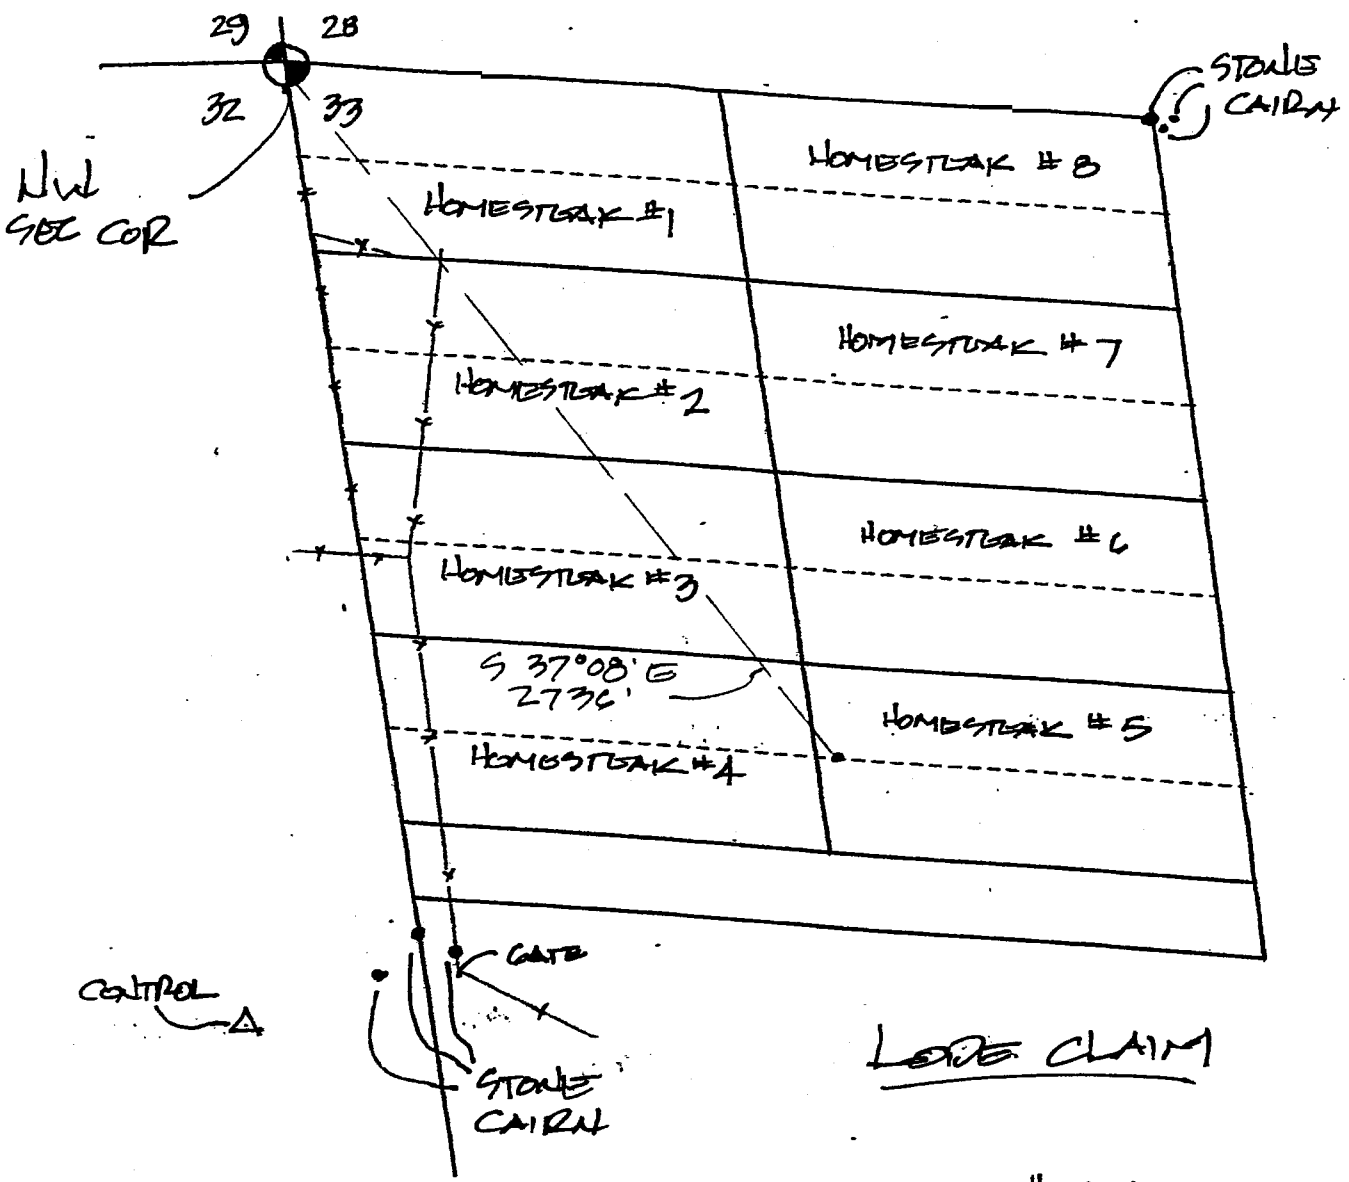 29 28
32 33
NW
SEC COR
STONE
CAIRN
HOMESTEAK #8
HOMESTEAK #1
HOMESTEAK #7
HOMESTEAK #2
HOMESTEAK #6
HOMESTEAK #3
S 37°08' E
2736'
HOMESTEAK #5
HOMESTEAK #4
GATE
CONTROL
LODE CLAIM
STONE
CAIRN